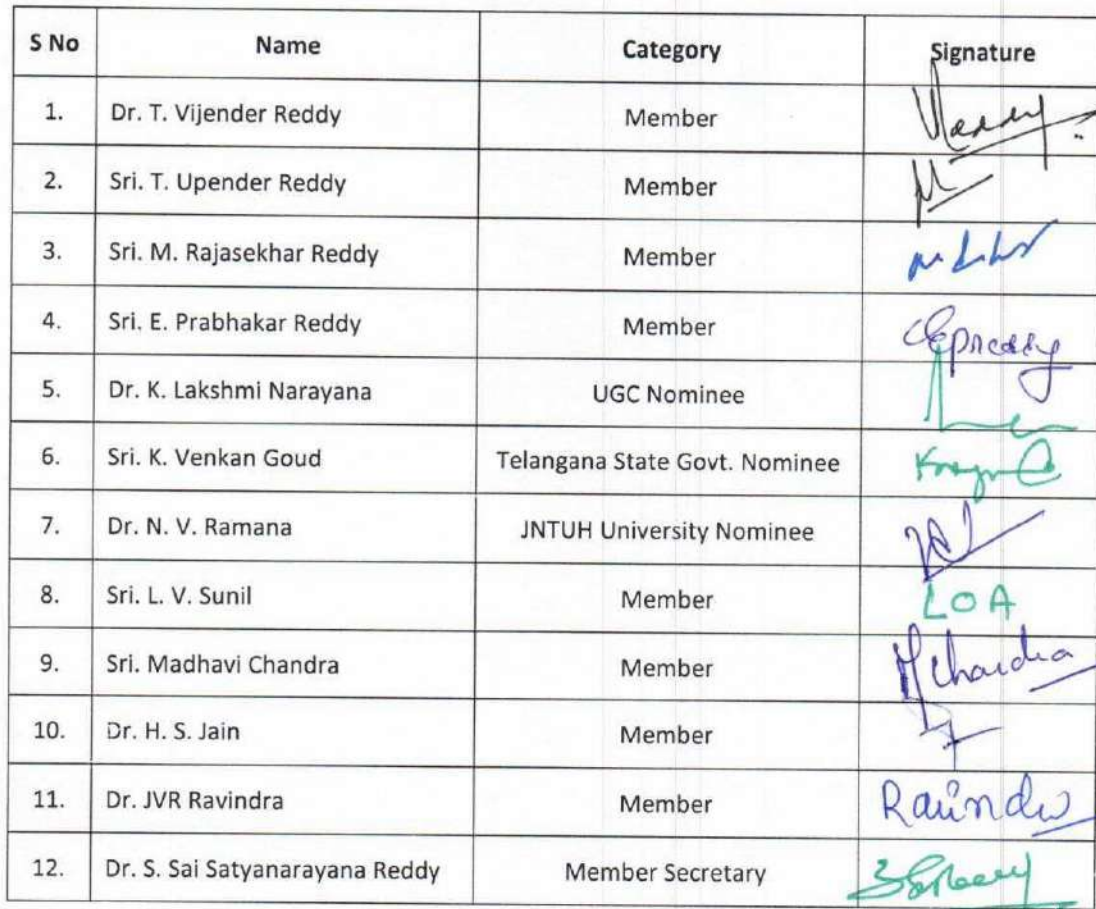 S No Name Category Signature
1. Dr. T. Vijender Reddy Member Reddy
2. Sri. T. Upender Reddy Member
3. Sri. M. Rajasekhar Reddy Member
4. Sri. E. Prabhakar Reddy Member Epreddy
5. Dr. K. Lakshmi Narayana UGC Nominee
6. Sri. K. Venkan Goud Telangana State Govt. Nominee
7. Dr. N. V. Ramana JNTUH University Nominee
8. Sri. L. V. Sunil Member LOA
9. Sri. Madhavi Chandra Member
10. Dr. H. S. Jain Member
11. Dr. JVR Ravindra Member
12. Dr. S. Sai Satyanarayana Reddy Member Secretary